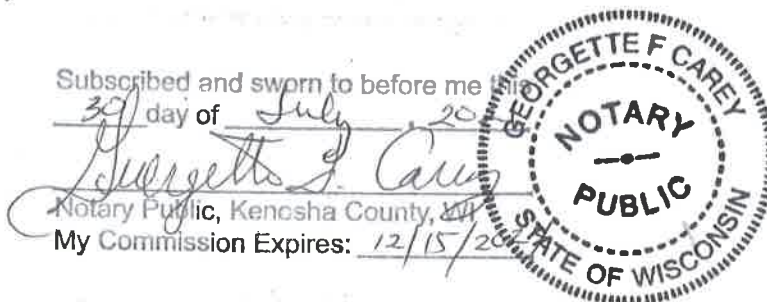 Subscribed and sworn to before me this
30 day of July, 20
Georgette F. Carey
Notary Public, Kenosha County, WI
My Commission Expires: 12/15/20
GEORGETTE F CAREY
NOTARY
PUBLIC
STATE OF WISCONSIN